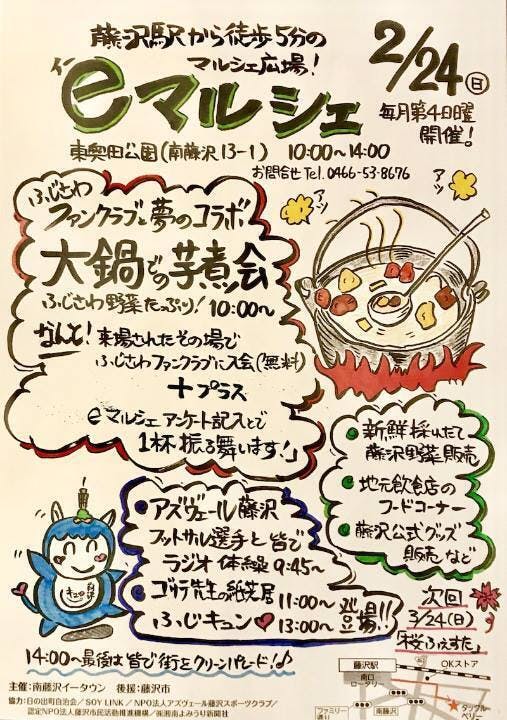 藤沢駅から徒歩5分の
マルシェ広場!
2/24(日)
イー
eマルシェ
毎月第4日曜
開催!
東奥田公園(南藤沢13-1) 10:00~14:00
お問合せ Tel. 0466-53-8676
ふじさわ
ファンクラブと夢のコラボ
大鍋での芋煮会
ふじさわ野菜たっぷり! 10:00~
なんと! 来場されたその場で
ふじさわファンクラブに入会(無料)
+プラス
eマルシェ アンケート記入とで
1杯振る舞います!
アツッ
アツッ
新鮮採れたて
藤沢野菜販売
地元飲食店の
フードコーナー
藤沢公式グッズ
販売など
アズヴェール藤沢
フットサル選手と皆で
ラジオ体操 9:45~
ゴリラ先生の紙芝居 11:00~
ふじキュン♥ 13:00~ 登場!!
キュン
14:00~最後は皆で街をクリーンパレード!♪
次回
3/24(日)
「桜ふぇすた」
主催:南藤沢イータウン 後援:藤沢市
協力:日の出町自治会/SOY LINK/NPO法人アズヴェール藤沢スポーツクラブ/
認定NPO法人藤沢市民活動推進機構/㈱湘南よみうり新聞社
藤沢駅
南口
ロータリー
OKストア
ファミリー
通り
南藤沢
タックル
ベリー